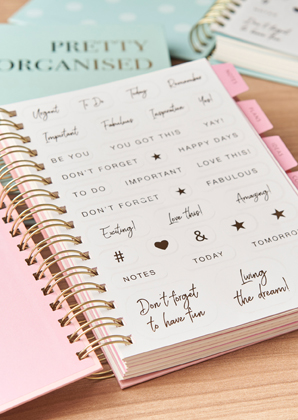 PRETTY
ORGANISED
Urgent To Do Today Remember
Important Fabulous Inspiration Yes!
BE YOU YOU GOT THIS YAY!
DON'T FORGET HAPPY DAYS
TO DO IMPORTANT LOVE THIS!
DON'T FORGET FABULOUS
Exciting! Love this! Amazing!
# &
NOTES TODAY TOMORRO
Don't forget
to have fun
Living
the dream!